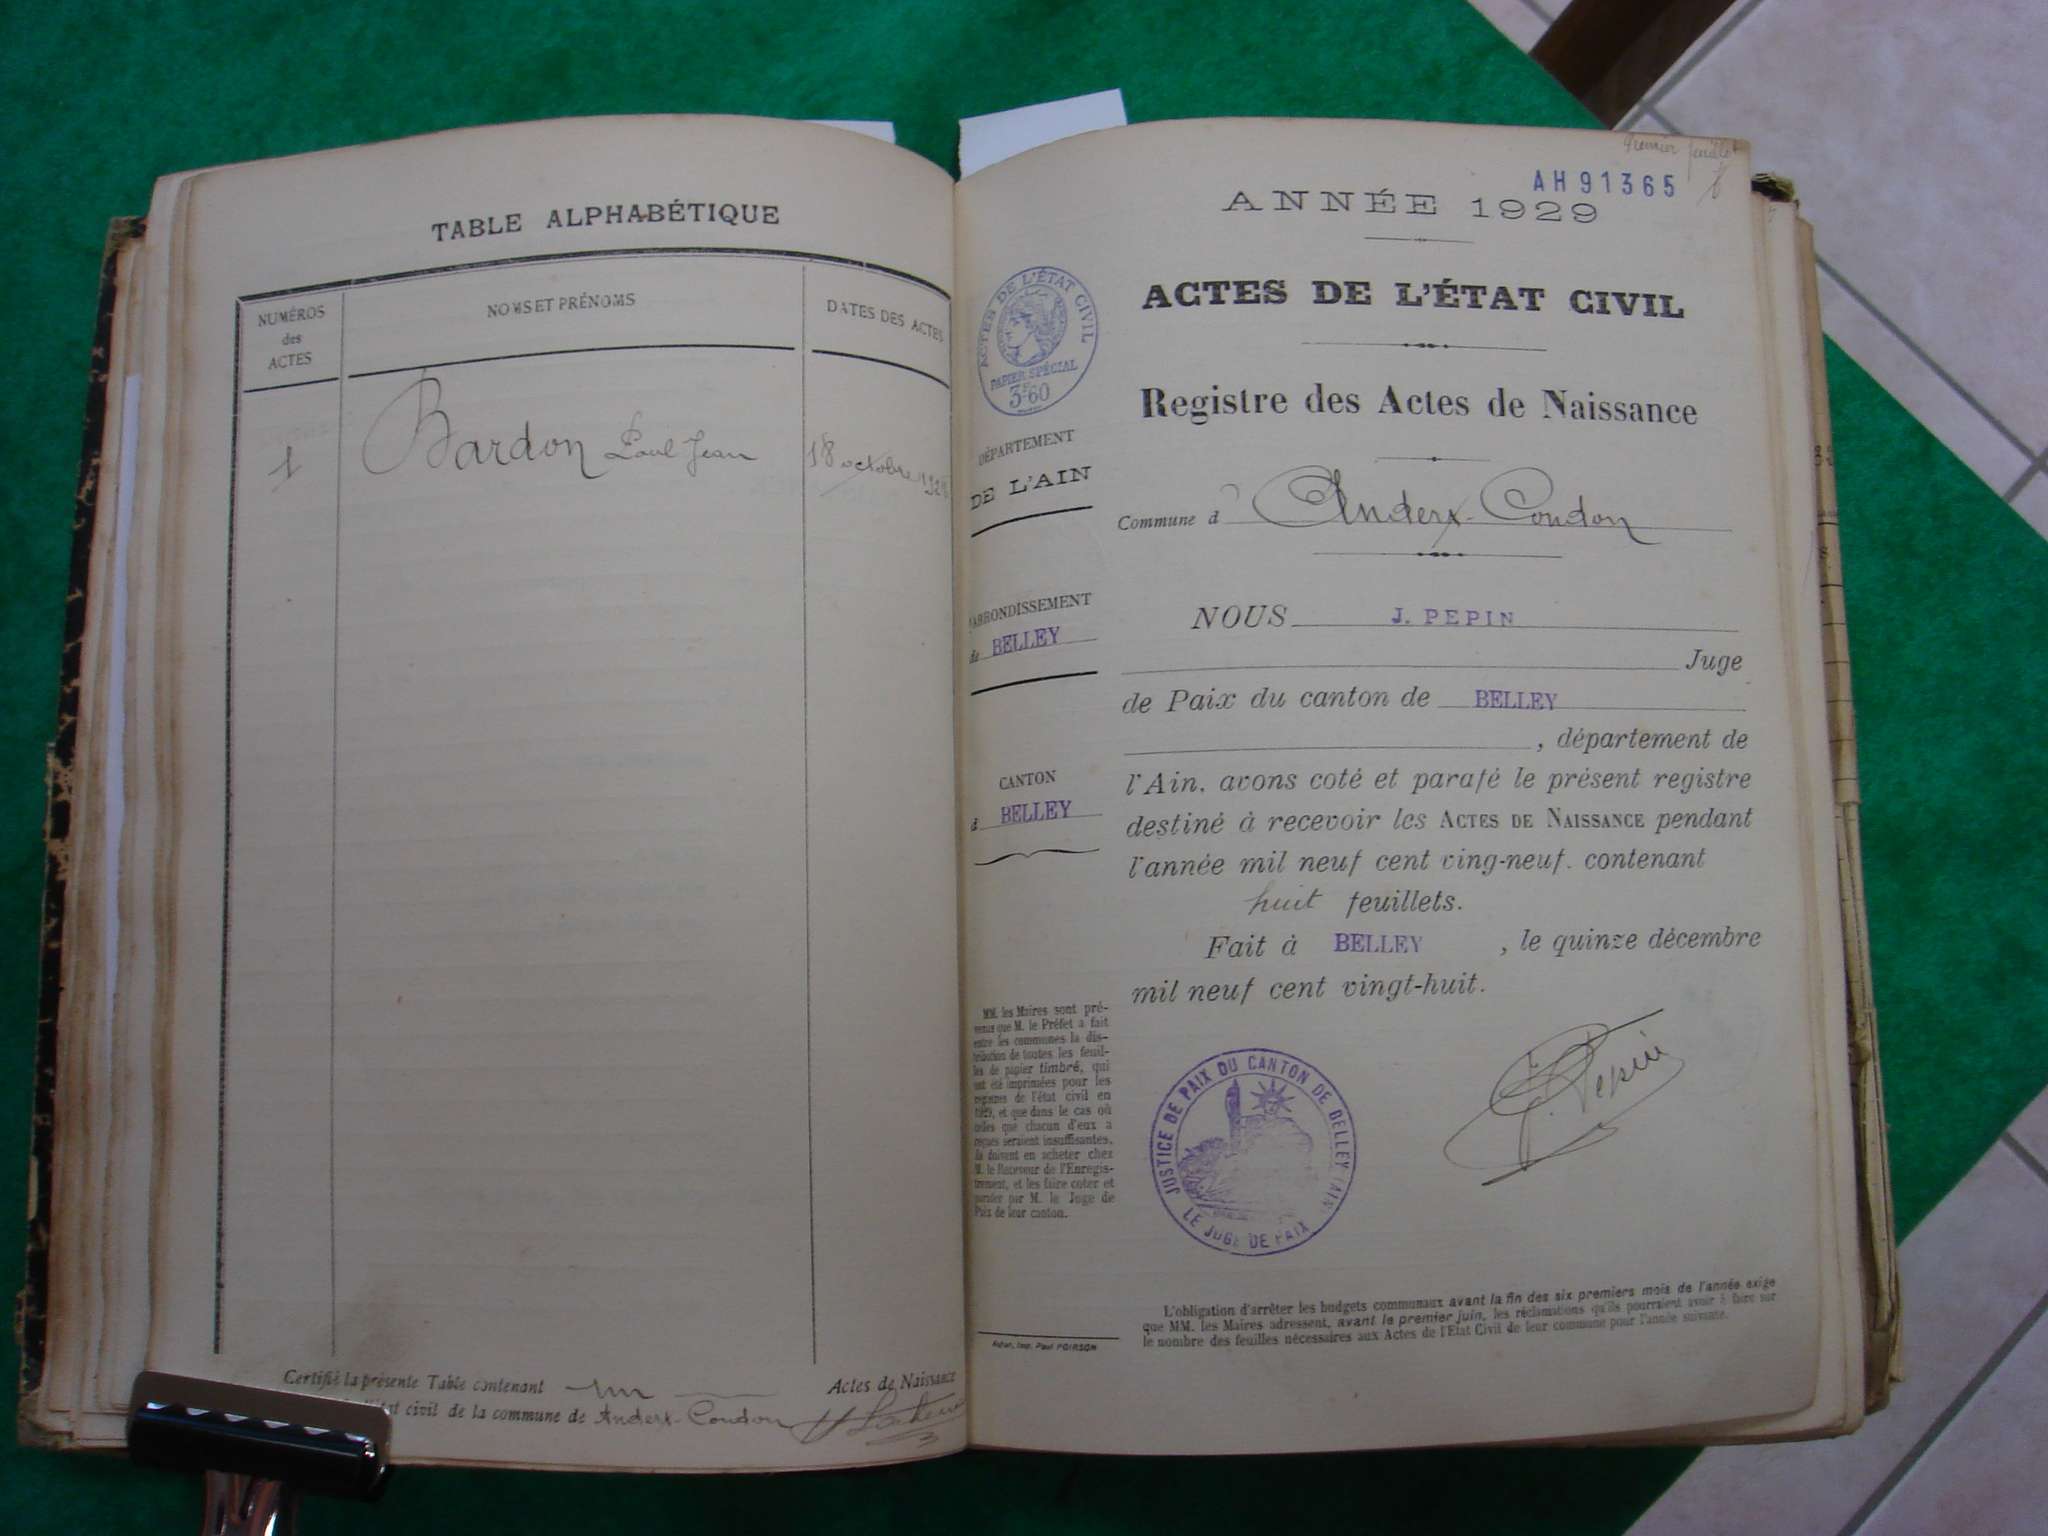 TABLE ALPHABÉTIQUE
NUMÉROS
des
ACTES
NOMS ET PRÉNOMS
DATES DES ACTES
1
Bardon Paul Jean
18 octobre
Certifié la présente Table contenant un Actes de Naissance
état civil de la commune de Andert-Condon
premier feuillet
AH 91365
ANNÉE 1929
ACTES DE L'ÉTAT CIVIL
ACTES DE L'ÉTAT CIVIL
PAPIER SPÉCIAL
3F60
Registre des Actes de Naissance
DÉPARTEMENT
DE L'AIN
Commune d'Andert-Condon
ARRONDISSEMENT
de BELLEY
CANTON
d BELLEY
NOUS J. PEPIN
Juge
de Paix du canton de BELLEY
, département de
l'Ain, avons coté et parafé le présent registre
destiné à recevoir les ACTES DE NAISSANCE pendant
l'année mil neuf cent ving-neuf. contenant
huit feuillets.
Fait à BELLEY , le quinze décembre
mil neuf cent vingt-huit.
J. Pepin
MM. les Maires sont pré-
venus que M. le Préfet a fait
entre les communes la dis-
tribution de toutes les feuil-
les de papier timbré, qui
ont été imprimées pour les
registres de l'état civil en
1929, et que dans le cas où
celles que chacun d'eux a
reçues seraient insuffisantes,
ils doivent en acheter chez
M. le Receveur de l'Enregis-
trement, et les faire coter et
parafer par M. le Juge de
Paix de leur canton.
JUSTICE DE PAIX DU CANTON DE BELLEY (AIN)
LE JUGE DE PAIX
L'obligation d'arrêter les budgets communaux avant la fin des six premiers mois de l'année exige
que MM. les Maires adressent, avant le premier juin, les réclamations qu'ils pourraient avoir à faire sur
le nombre des feuilles nécessaires aux Actes de l'Etat Civil de leur commune pour l'année suivante.
Imp. Paul POIRSON